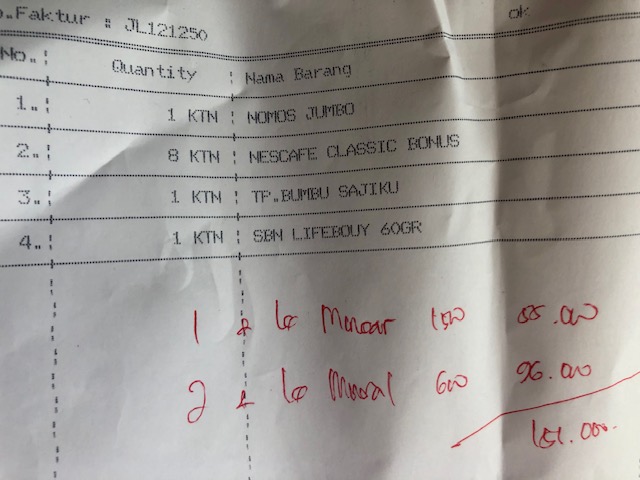 o.Faktur : JL121250 ok
No. : Quantity : Nama Barang
1. : 1 KTN : NOMOS JUMBO
2. : 8 KTN : NESCAFE CLASSIC BONUS
3. : 1 KTN : TP.BUMBU SAJIKU
4. : 1 KTN : SBN LIFEBOUY 60GR
1 Le 1500 55.000
2 Le Mineral 600 96.000
151.000.